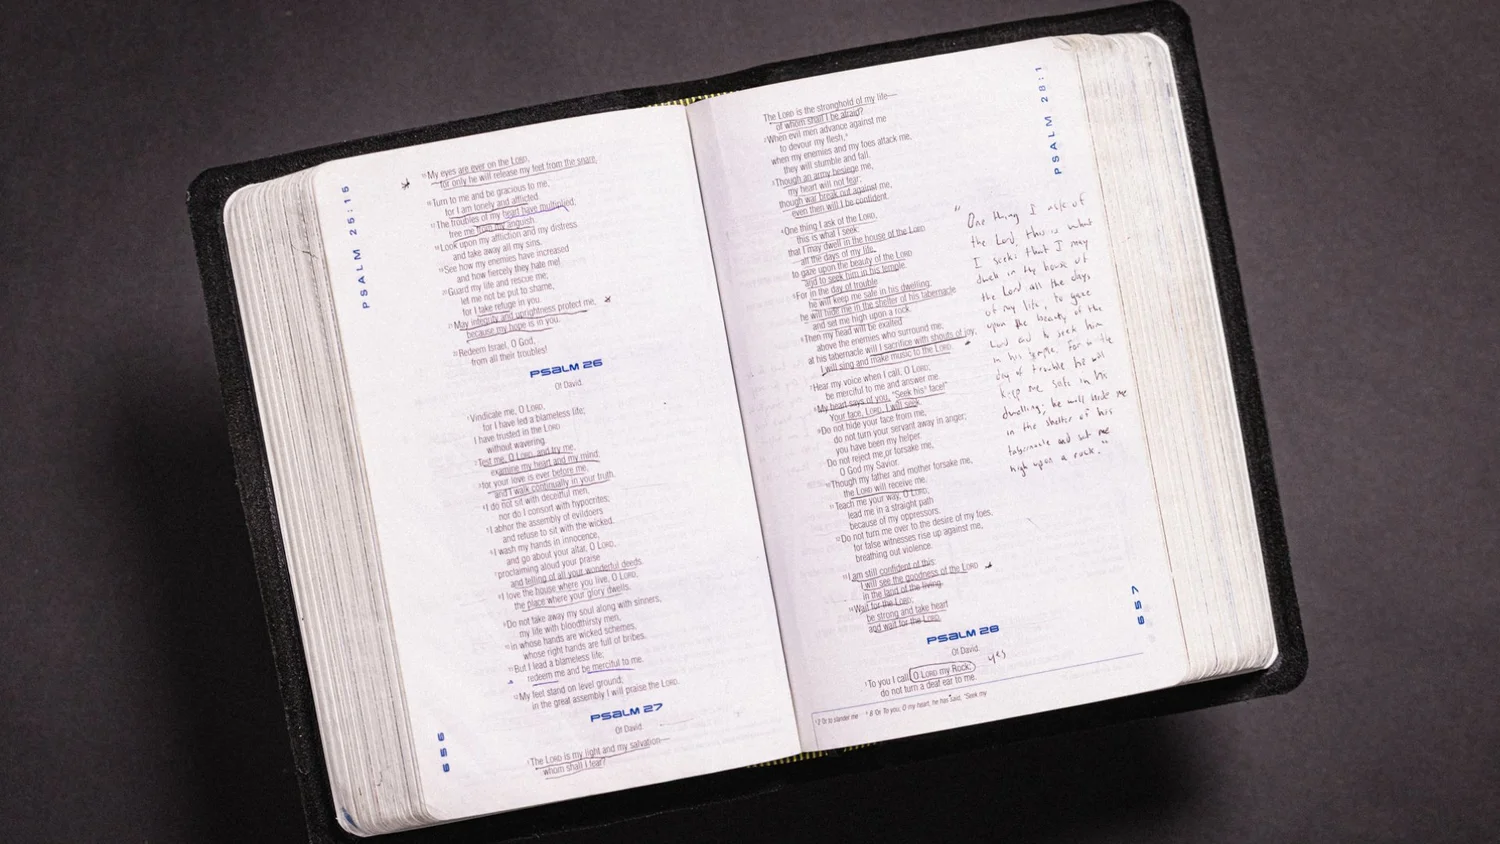 PSALM 25:15
¹⁵My eyes are ever on the LORD,
for only he will release my feet from the snare.
¹⁶Turn to me and be gracious to me,
for I am lonely and afflicted.
¹⁷The troubles of my heart have multiplied,
free me from my anguish.
¹⁸Look upon my affliction and my distress
and take away all my sins.
¹⁹See how my enemies have increased
and how fiercely they hate me!
²⁰Guard my life and rescue me;
let me not be put to shame,
for I take refuge in you.
²¹May integrity and uprightness protect me,
because my hope is in you.
²²Redeem Israel, O God,
from all their troubles!
PSALM 26
Of David.
¹Vindicate me, O LORD,
for I have led a blameless life;
I have trusted in the LORD
without wavering.
²Test me, O LORD, and try me,
examine my heart and my mind;
³for your love is ever before me,
and I walk continually in your truth.
⁴I do not sit with deceitful men,
nor do I consort with hypocrites;
⁵I abhor the assembly of evildoers
and refuse to sit with the wicked.
⁶I wash my hands in innocence,
and go about your altar, O LORD,
⁷proclaiming aloud your praise
and telling of all your wonderful deeds.
⁸I love the house where you live, O LORD,
the place where your glory dwells.
⁹Do not take away my soul along with sinners,
my life with bloodthirsty men,
¹⁰in whose hands are wicked schemes,
whose right hands are full of bribes.
¹¹But I lead a blameless life;
redeem me and be merciful to me.
¹²My feet stand on level ground;
in the great assembly I will praise the LORD.
PSALM 27
Of David.
¹The LORD is my light and my salvation—
whom shall I fear?
656
The LORD is the stronghold of my life—
of whom shall I be afraid?
²When evil men advance against me
to devour my flesh,ᵃ
when my enemies and my foes attack me,
they will stumble and fall.
³Though an army besiege me,
my heart will not fear;
though war break out against me,
even then will I be confident.
⁴One thing I ask of the LORD,
this is what I seek:
that I may dwell in the house of the LORD
all the days of my life,
to gaze upon the beauty of the LORD
and to seek him in his temple.
⁵For in the day of trouble
he will keep me safe in his dwelling;
he will hide me in the shelter of his tabernacle
and set me high upon a rock.
⁶Then my head will be exalted
above the enemies who surround me;
at his tabernacle will I sacrifice with shouts of joy;
I will sing and make music to the LORD.
⁷Hear my voice when I call, O LORD;
be merciful to me and answer me.
⁸My heart says of you, "Seek hisᵇ face!"
Your face, LORD, I will seek.
⁹Do not hide your face from me,
do not turn your servant away in anger;
you have been my helper.
Do not reject me or forsake me,
O God my Savior.
¹⁰Though my father and mother forsake me,
the LORD will receive me.
¹¹Teach me your way, O LORD;
lead me in a straight path
because of my oppressors.
¹²Do not turn me over to the desire of my foes,
for false witnesses rise up against me,
breathing out violence.
¹³I am still confident of this:
I will see the goodness of the LORD
in the land of the living.
¹⁴Wait for the LORD;
be strong and take heart
and wait for the LORD.
PSALM 28
Of David.
¹To you I call, O LORD my Rock;
do not turn a deaf ear to me.
yes
ᵃ2 Or to slander me ᵇ8 Or To you, O my heart, he has said, "Seek my
PSALM 28:1
"One thing I ask of
the Lord, this is what
I seek: that I may
dwell in the house of
the Lord all the days
of my life, to gaze
upon the beauty of the
Lord and to seek him
in his temple. For in the
day of trouble he will
keep me safe in his
dwelling; he will hide me
in the shelter of his
tabernacle and set me
high upon a rock."
657